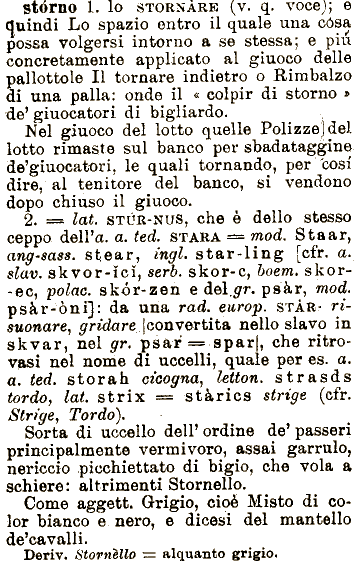 stórno 1. lo STORNÀRE (v. q. voce); e
quindi Lo spazio entro il quale una cósa
possa volgersi intorno a se stessa; e piú
concretamente applicato al giuoco delle
pallottole Il tornare indietro o Rimbalzo
di una palla: onde il « colpir di storno »
de' giuocatori di bigliardo.
Nel giuoco del lotto quelle Polizze] del
lotto rimaste sul banco per sbadataggine
de'giuocatori, le quali tornando, per cosí
dire, al tenitore del banco, si vendono
dopo chiuso il giuoco.
2. = lat. STÚR-NUS, che è dello stesso
ceppo dell'a. a. ted. STARA = mod. Staar,
ang-sass. stear, ingl. star-ling [cfr. a.
slav. skvor-ící, serb. skor-c, boem. skor-
-ec, polac. skór-zen e del gr. psàr, mod.
psàr-òni]: da una rad. europ. STÀR- ri-
suonare, gridare [convertita nello slavo in
skvar, nel gr. psar = spar], che ritro-
vasi nel nome di uccelli, quale per es. a.
a. ted. storah cicogna, letton. strasds
tordo, lat. strix = stàrics strige (cfr.
Strige, Tordo).
Sorta di uccello dell' ordine de' passeri
principalmente vermivoro, assai garrulo,
nericcio picchiettato di bigio, che vola a
schiere: altrimenti Stornello.
Come aggett. Grigio, cioè Misto di co-
lor bianco e nero, e dicesi del mantello
de'cavalli.
Deriv. Stornèllo = alquanto grigio.